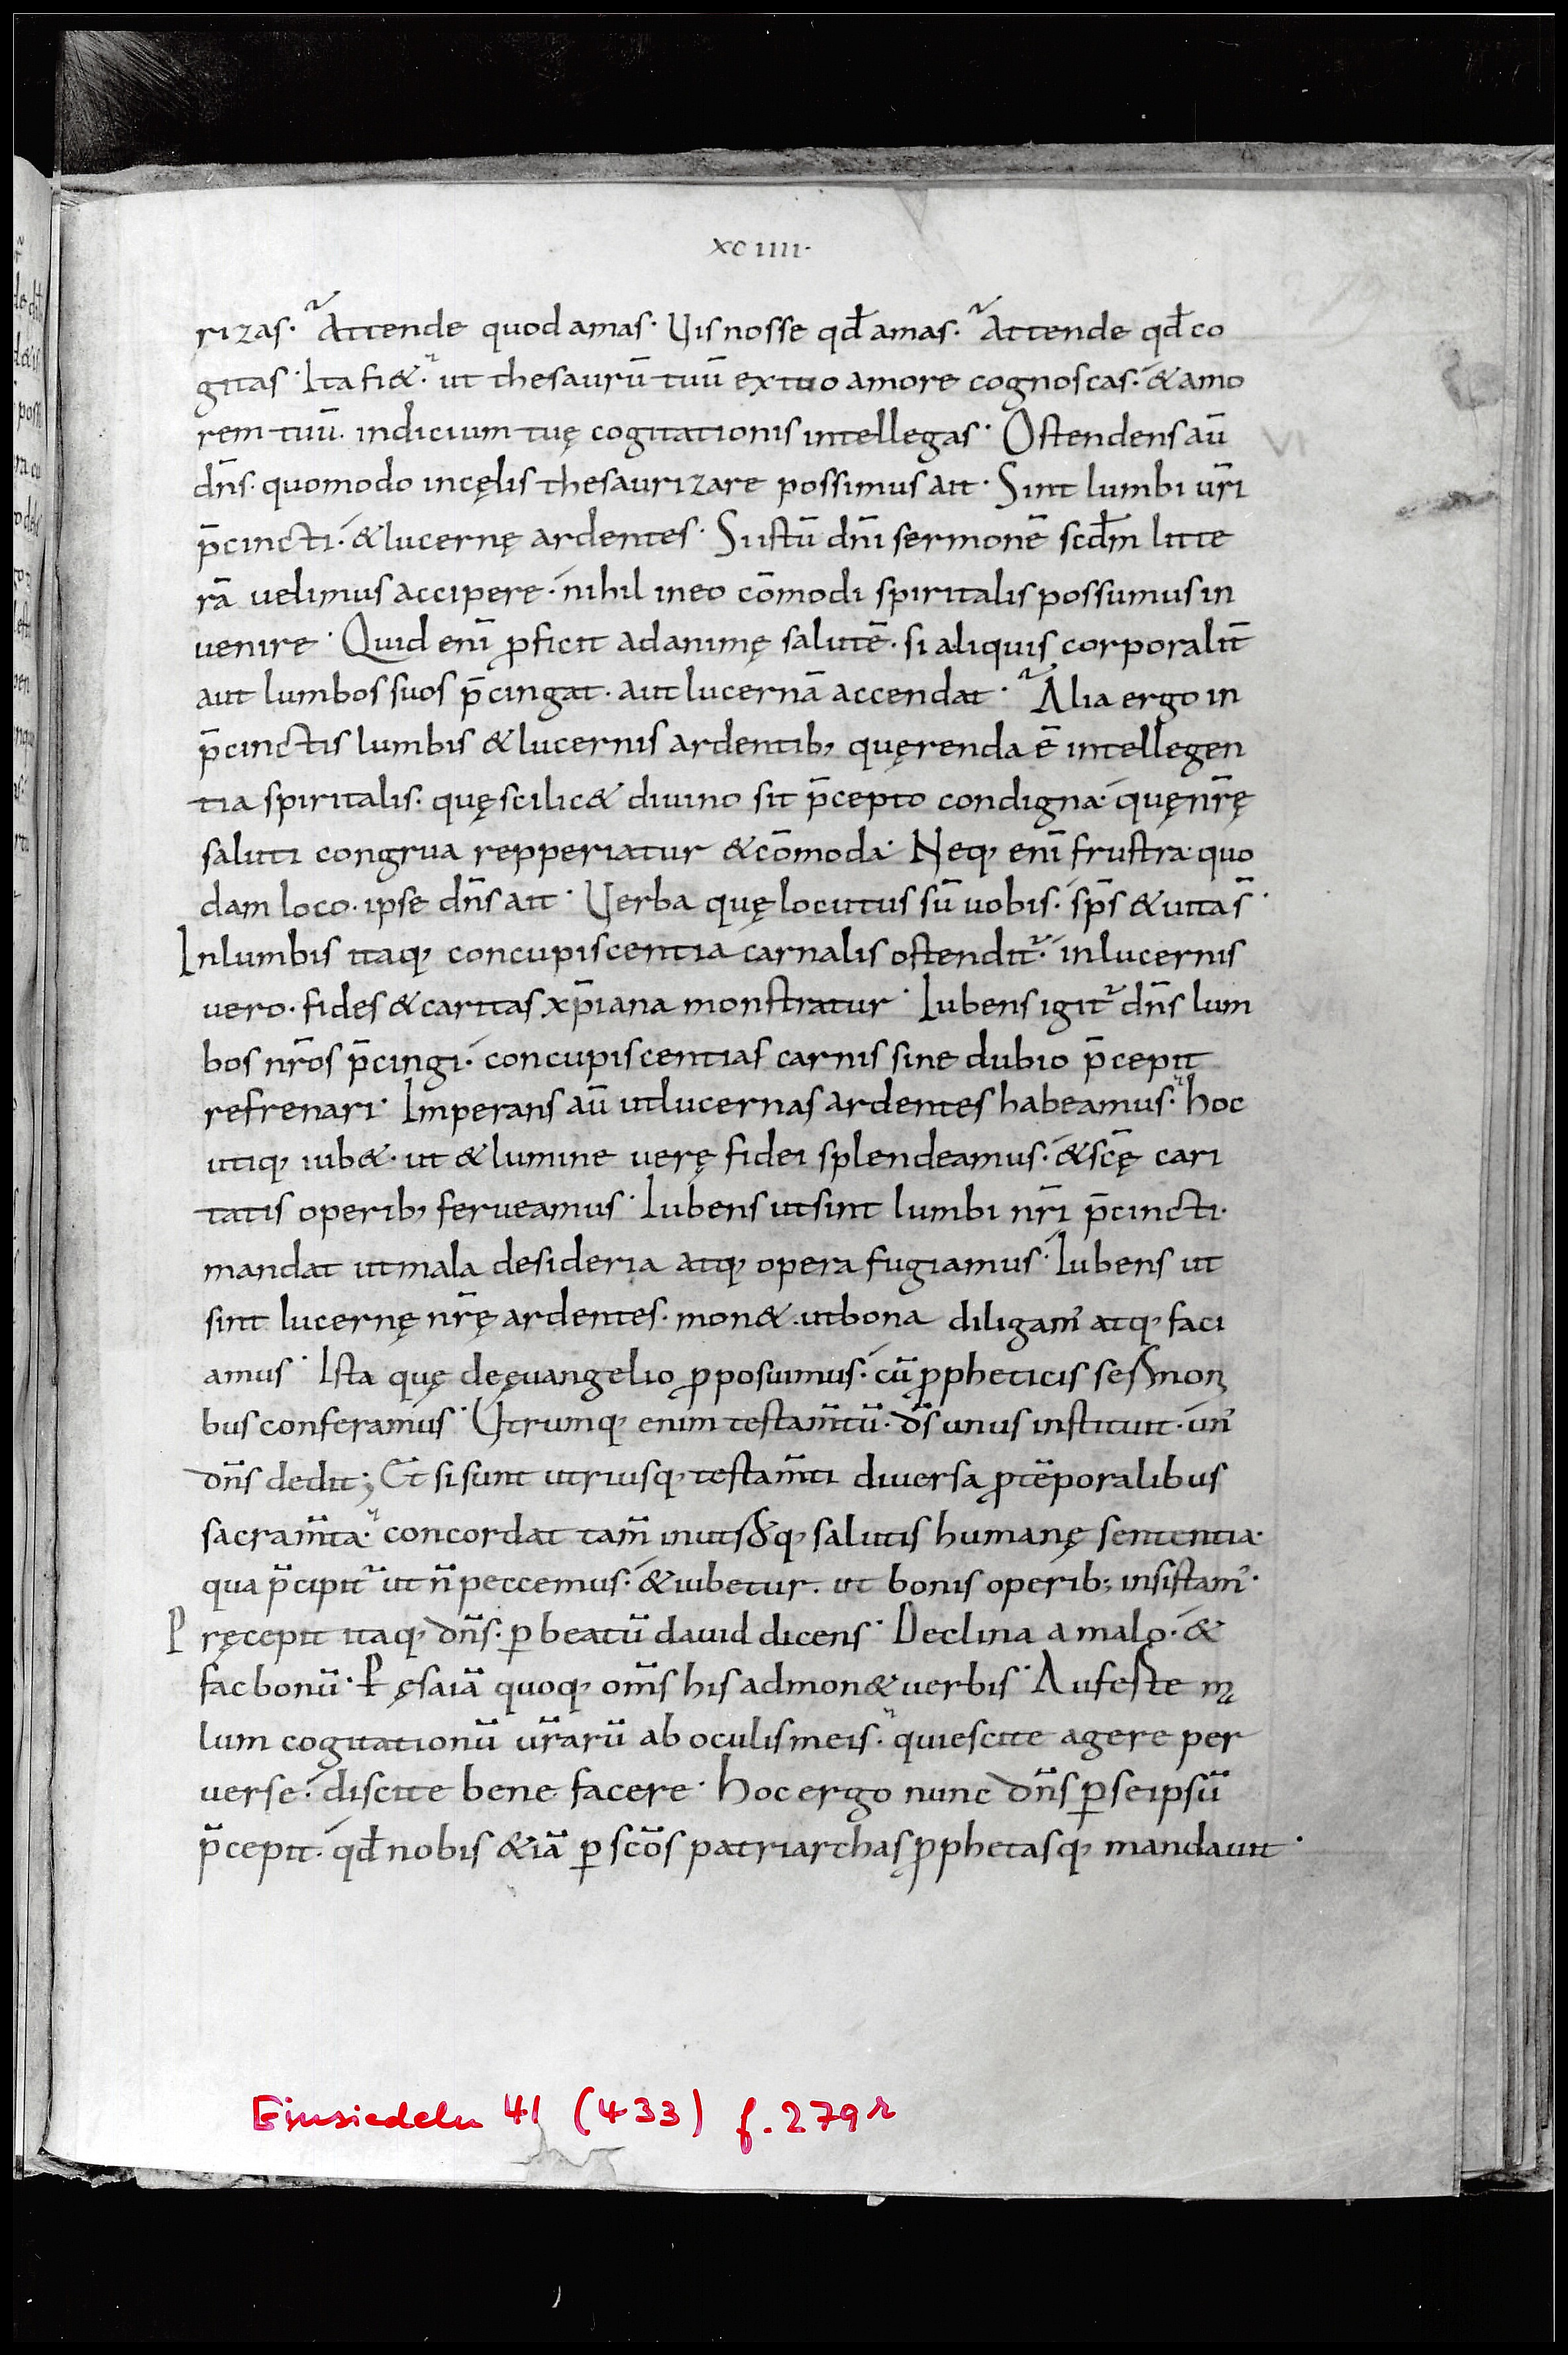 xc iiii·
rizas· Attende quod amas· Uis nosse qđ amas· Attende qđ co
gitas· Ita fi&· ut thesaurū tuū ex tuo amore cognoscas· & amo
rem tuū· indicium tuę cogitationis intellegas· Ostendens aū
dn̄s· quomodo in cęlis thesaurizare possimus ait· Sint lumbi ur̄i
p̄cincti· & lucernę ardentes· Si istū dn̄i sermonē scđm litte
rā uelimus accipere· nihil in eo cōmodi spiritalis possumus in
uenire· Quid enī ꝓficit ad animę salutē· si aliquis corporalit̄
aut lumbos suos p̄cingat· aut lucernā accendat· Alia ergo in
p̄cinctis lumbis & lucernis ardentib, quęrenda ē intellegen
tia spiritalis· quę scilic& diuino sit p̄cepto condigna· quę nr̄ę
saluti congrua repperiatur & cōmoda· Neq, enī frustra quo
dam loco· ipse dn̄s ait· Uerba quę locutus sū uobis· sp̄s & uita s̄·
In lumbis itaq, concupiscentia carnalis ostendit᷑· in lucernis
uero· fides & caritas xp̄iana monstratur· Iubens igit᷑ dn̄s lum
bos nr̄os p̄cingi· concupiscentias carnis sine dubio p̄cepit
refrenari· Imperans aū ut lucernas ardentes habeamus· hoc
utiq, iub&· ut & lumine uerę fidei splendeamus· & sc̄ę cari
tatis operib, ferueamus· Iubens ut sint lumbi nr̄i p̄cincti·
mandat ut mala desideria atq, opera fugiamus· Iubens ut
sint lucernę nr̄ę ardentes· mon&· ut bona diligam᾿ atq, faci
amus· Ista quę de ęuangelio ꝓposuimus· cū ꝓpheticis sermoni
bus conferamus· Utrumq, enim testam̄tū· ds̄ unus instituit· un᾿
dn̄s dedit; Et si sunt utriusq, testam̄ti diuersa ꝓ tēporalibus
sacram̄ta· concordat tam̄ in utrisq, salutis humanę sententia·
qua p̄cipit᷑ ut n̄ peccemus· & iubetur· ut bonis operib; insistam᾿·
Pręcepit itaq, dn̄s· ꝑ beatū dauid dicens· Declina a malo· &
fac bonū· Ꝑ ęsaiā quoq, om̄s his admon& uerbis· Auferte ma
lum cogitationū ur̄arū ab oculis meis· quiescite agere per
uerse· discite bene facere· Hoc ergo nunc dn̄s ꝑ se ipsū
p̄cepit· qđ nobis &iā ꝑ sc̄os patriarchas ꝓphetasq, mandauit·
Einsiedeln 41 (433) f. 279r